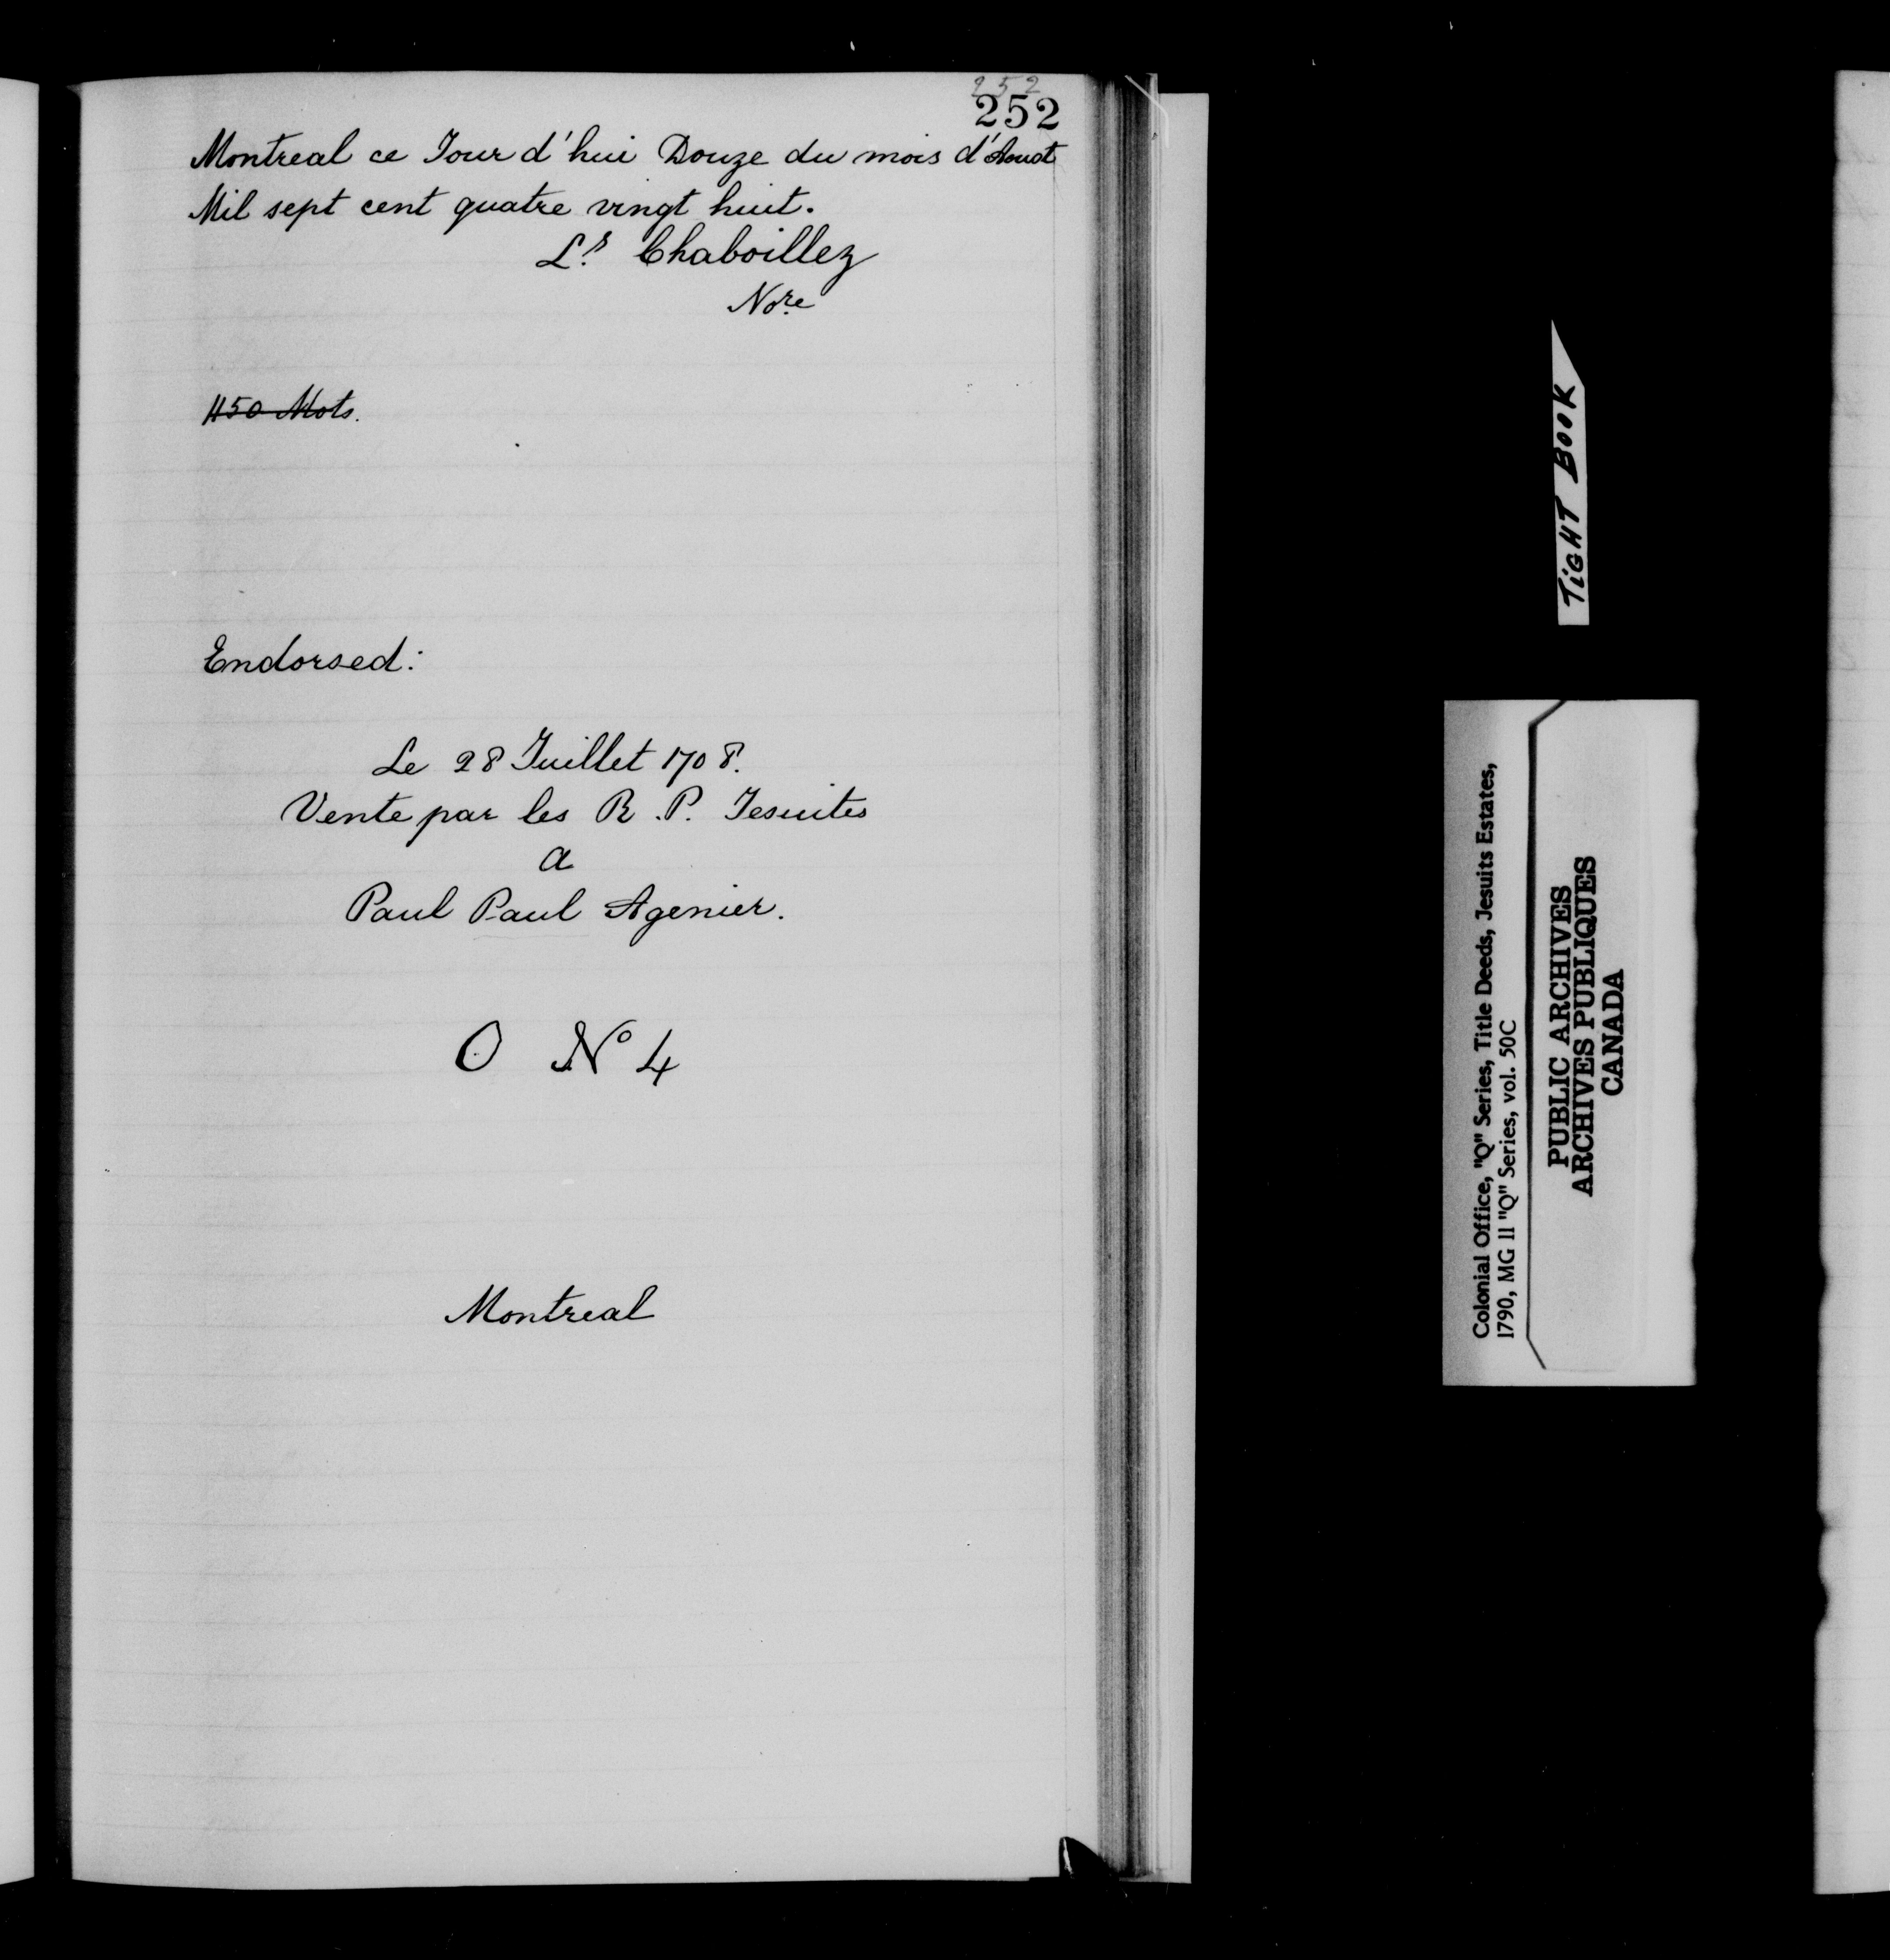 252
252
Montreal ce Jour d'hui Douze du mois d'Aoust
Mil sept cent quatre vingt huit.
Ls. Chaboillez
Nore
450 Mots.
Endorsed:
Le 28 Juillet 1708.
Vente par les R.P. Jesuites
a
Paul Paul Agenier.
O No 4
Montreal
TIGHT BOOK
Colonial Office, "Q" Series, Title Deeds, Jesuits Estates,
1790, MG 11 "Q" Series, vol. 50C
PUBLIC ARCHIVES
ARCHIVES PUBLIQUES
CANADA